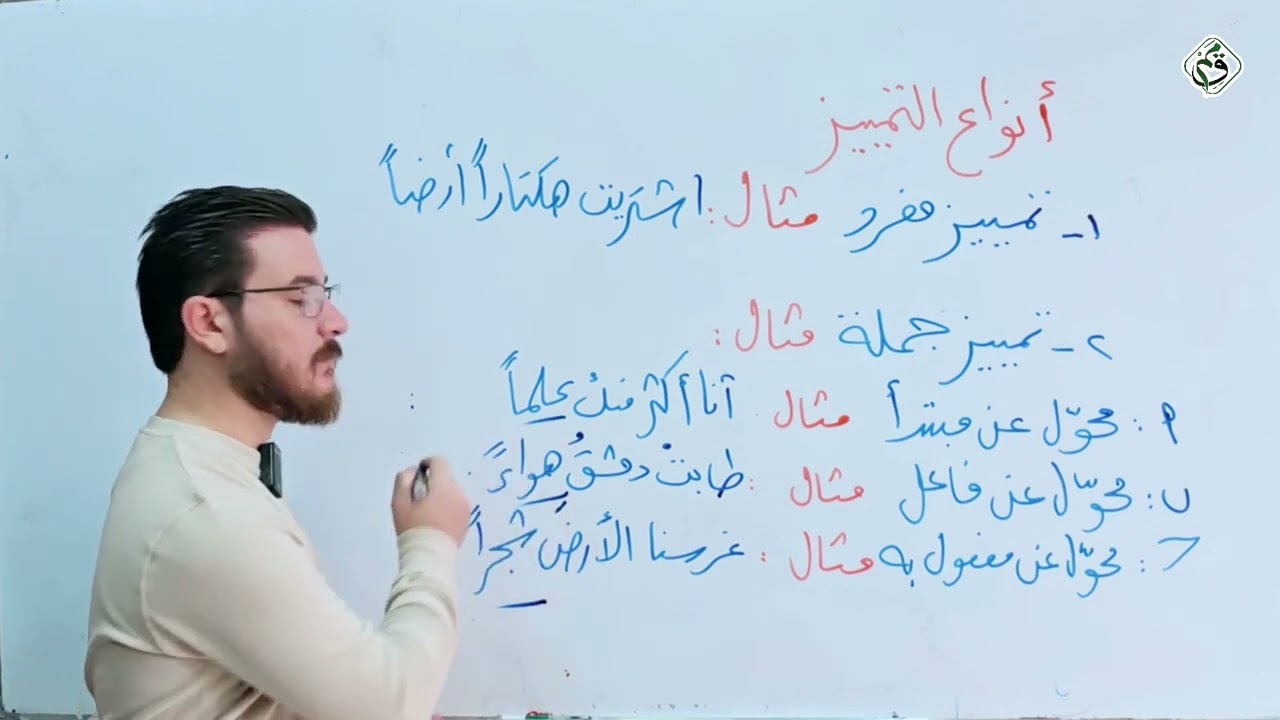 أنواع التمييز
١- تمييز مفرد مثال: اشتريت هكتاراً أرضاً
٢- تمييز جملة مثال:
أ: محوّل عن مبتدأ مثال أنا أكثر منك علماً
ب: محوّل عن فاعل مثال: طابتْ دمشقُ هواءً
ج: محوّل عن مفعول به مثال: غرسنا الأرضَ شجراً